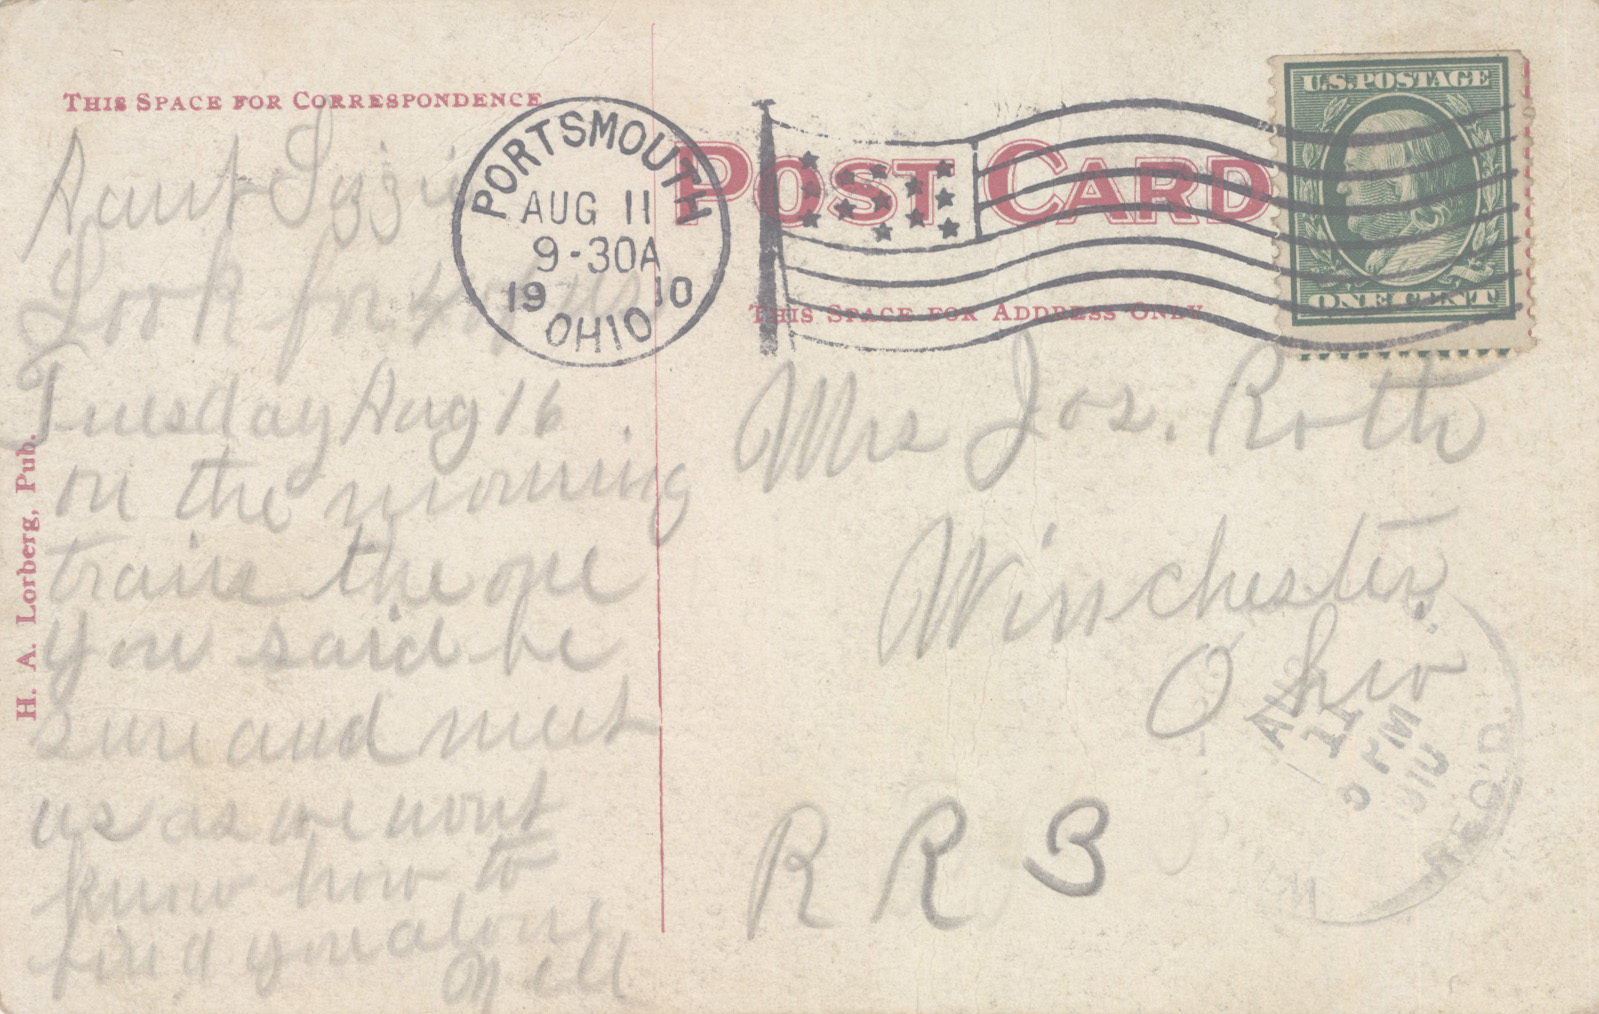 THIS SPACE FOR CORRESPONDENCE
Aunt Lizzie
Look for us
Tuesday Aug 16
on the morning
train the one
you said be
sure and meet
us as we wont
know how to
find you alone
Nell
H. A. Lorberg, Pub.
PORTSMOUTH
AUG 11
9-30A
1910
OHIO
POST CARD
THIS SPACE FOR ADDRESS ONLY
U.S. POSTAGE
ONE CENT
Mrs Jos. Roth
Winchester
Ohio
R R 3
AUG
11
PM
REC'D.